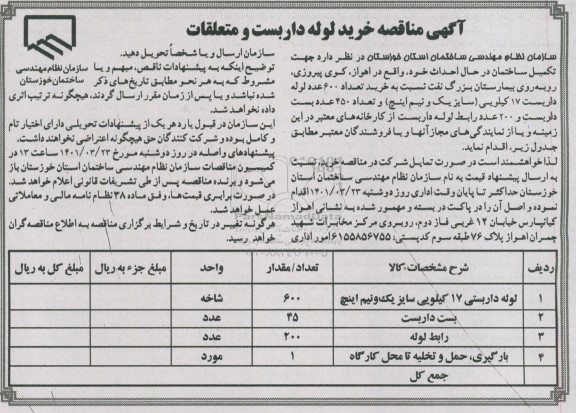 آگهی مناقصه خرید لوله داربست و متعلقات
سازمان نظام مهندسی
ساختمان خوزستان
سازمان نظام مهندسی ساختمان استان خوزستان در نظر دارد جهت
تکمیل ساختمان در حال احداث خود، واقع در اهواز، کوی پیروزی،
روبه‌روی بیمارستان بزرگ نفت نسبت به خرید تعداد ۶۰۰ عدد لوله
داربست ۱۷ کیلویی (سایز یک و نیم اینچ) و تعداد ۴۵۰ عدد بست
داربست و ۲۰۰ عدد رابط لوله داربست از کارخانه‌های معتبر در این
زمینه و یا از نمایندگی های مجاز آنها و یا فروشندگان معتبر مطابق
جدول زیر، اقدام نماید.
لذا خواهشمند است در صورت تمایل شرکت در مناقصه نسبت
به ارسال پیشنهاد قیمت به نام سازمان نظام مهندسی ساختمان استان
خوزستان حداکثر تا پایان وقت اداری روز دوشنبه ۱۴۰۱/۰۳/۲۳ اقدام
نموده و اصل آن را در پاکت در بسته و مهمور شده به نشانی اهواز
کیانپارس خیابان ۱۲ غربی فاز دوم، روبروی مرکز مخابرات شهید
چمران اهواز پلاک ۷۶ طبقه سوم کدپستی: ۶۱۵۵۸۵۶۷۵۵ امور اداری
سازمان ارسال و یا شخصاً تحویل دهید.
توضیح اینکه به پیشنهادات ناقص، مبهم و یا
مشروط که به هر نحو مطابق تاریخ‌های ذکر
شده نباشد و یا پس از زمان مقرر ارسال گردند، هیچگونه ترتیب اثری
داده نخواهد شد.
این سازمان در قبول یا رد هر یک از پیشنهادات تحویلی دارای اختیار تام
و کامل بوده و شرکت کنندگان حق هیچگونه اعتراضی نخواهند داشت.
پیشنهادهای واصله در روز دوشنبه مورخ ۱۴۰۱/۰۳/۲۳ ساعت ۱۳ در
کمیسیون مناقصات سازمان نظام مهندسی ساختمان استان خوزستان باز
می‌شود و برنده مناقصه پس از طی تشریفات قانونی اعلام خواهد شد.
در صورت برابری قیمت‌ها، وفق ماده ۳۸ نظام نامه مالی و معاملاتی
عمل خواهد شد.
هرگونه تغییر در تاریخ و شرایط برگزاری مناقصه به اطلاع مناقصه گران
خواهد رسید.
ردیف شرح مشخصات-کالا تعداد/ مقدار واحد مبلغ جزء به ریال مبلغ کل به ریال
۱ لوله داربستی ۱۷ کیلویی سایز یک‌ونیم اینچ ۶۰۰ شاخه
۲ بست داربست ۴۵ عدد
۳ رابط لوله ۲۰۰ عدد
۴ بارگیری، حمل و تخلیه تا محل کارگاه ۱ مورد
جمع کل